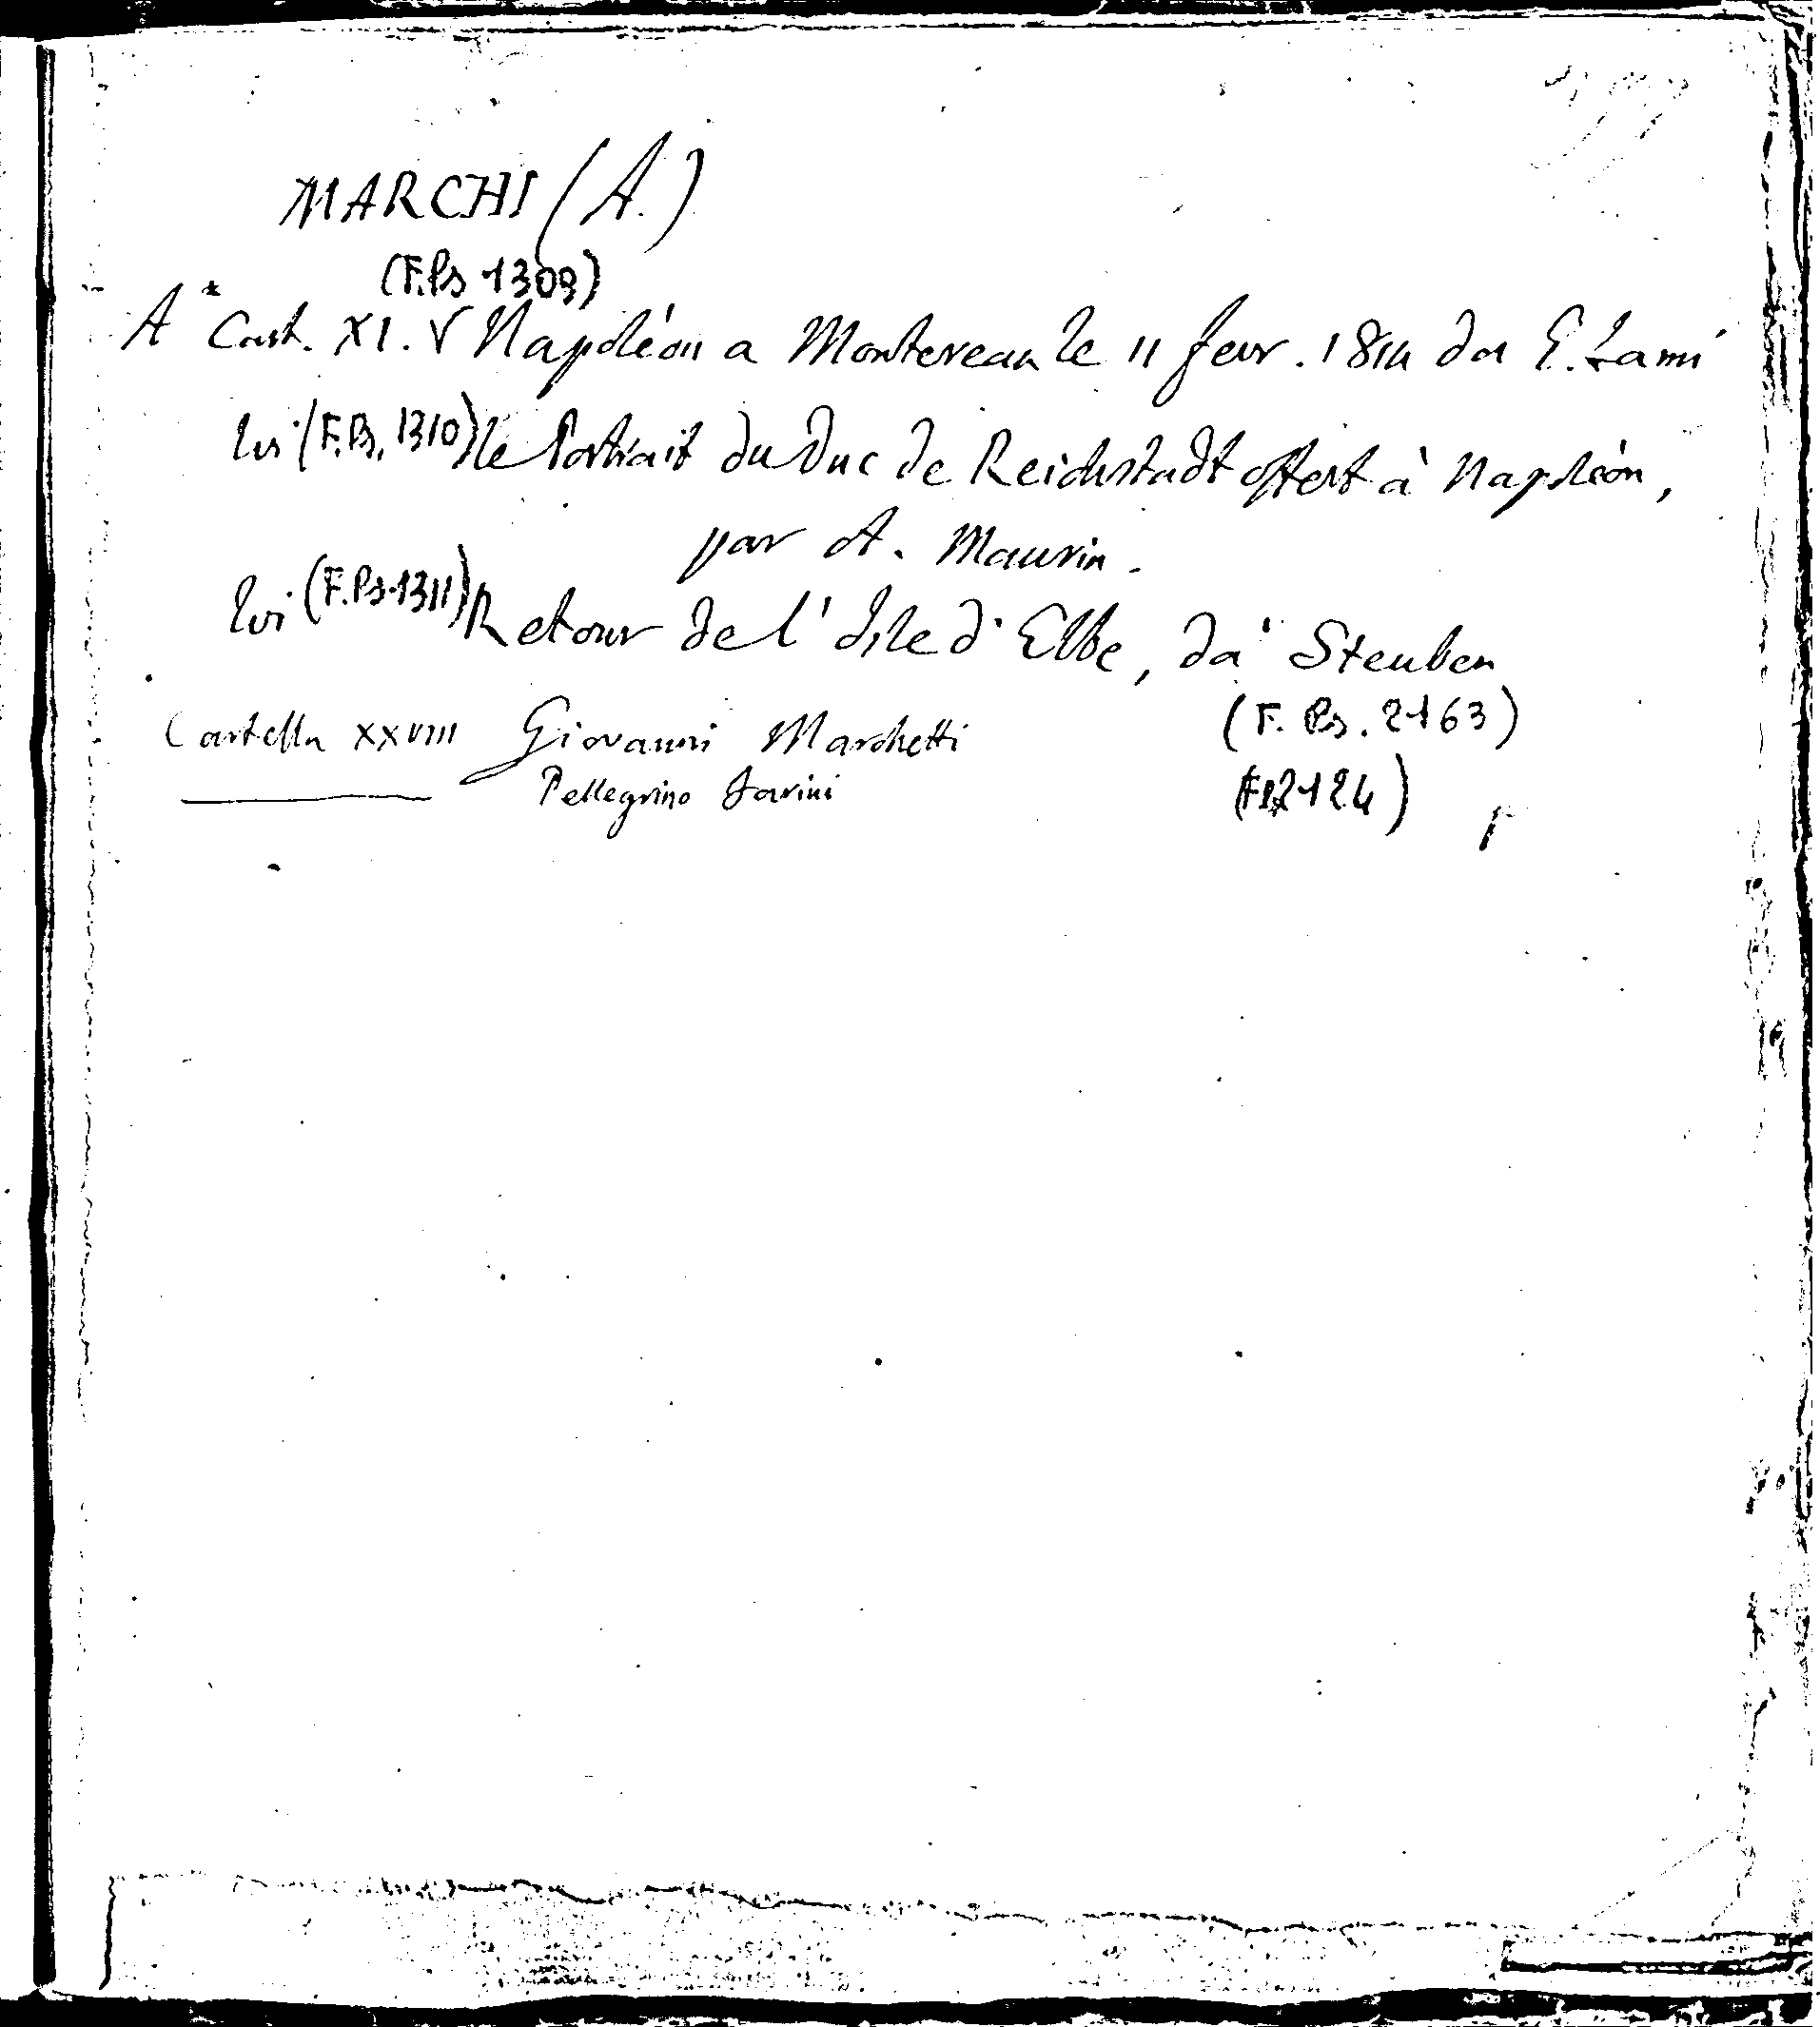 MARCHI (A.)
(F.Ps 1309)
A * Cart. XI. V Napoléon a Montereau le 11 fevr. 1814 da E. Lami
Ivi (F.Ps. 1310) le Portrait du Duc de Reichstadt offert à Napoléon,
par A. Maurin.
Ivi (F.Ps. 1311) Retour de l'Isle d'Elbe, da Steuben
Cartella XXVIII Giovanni Marchetti (F. Ps. 2163)
Pellegrino Farini 2124)